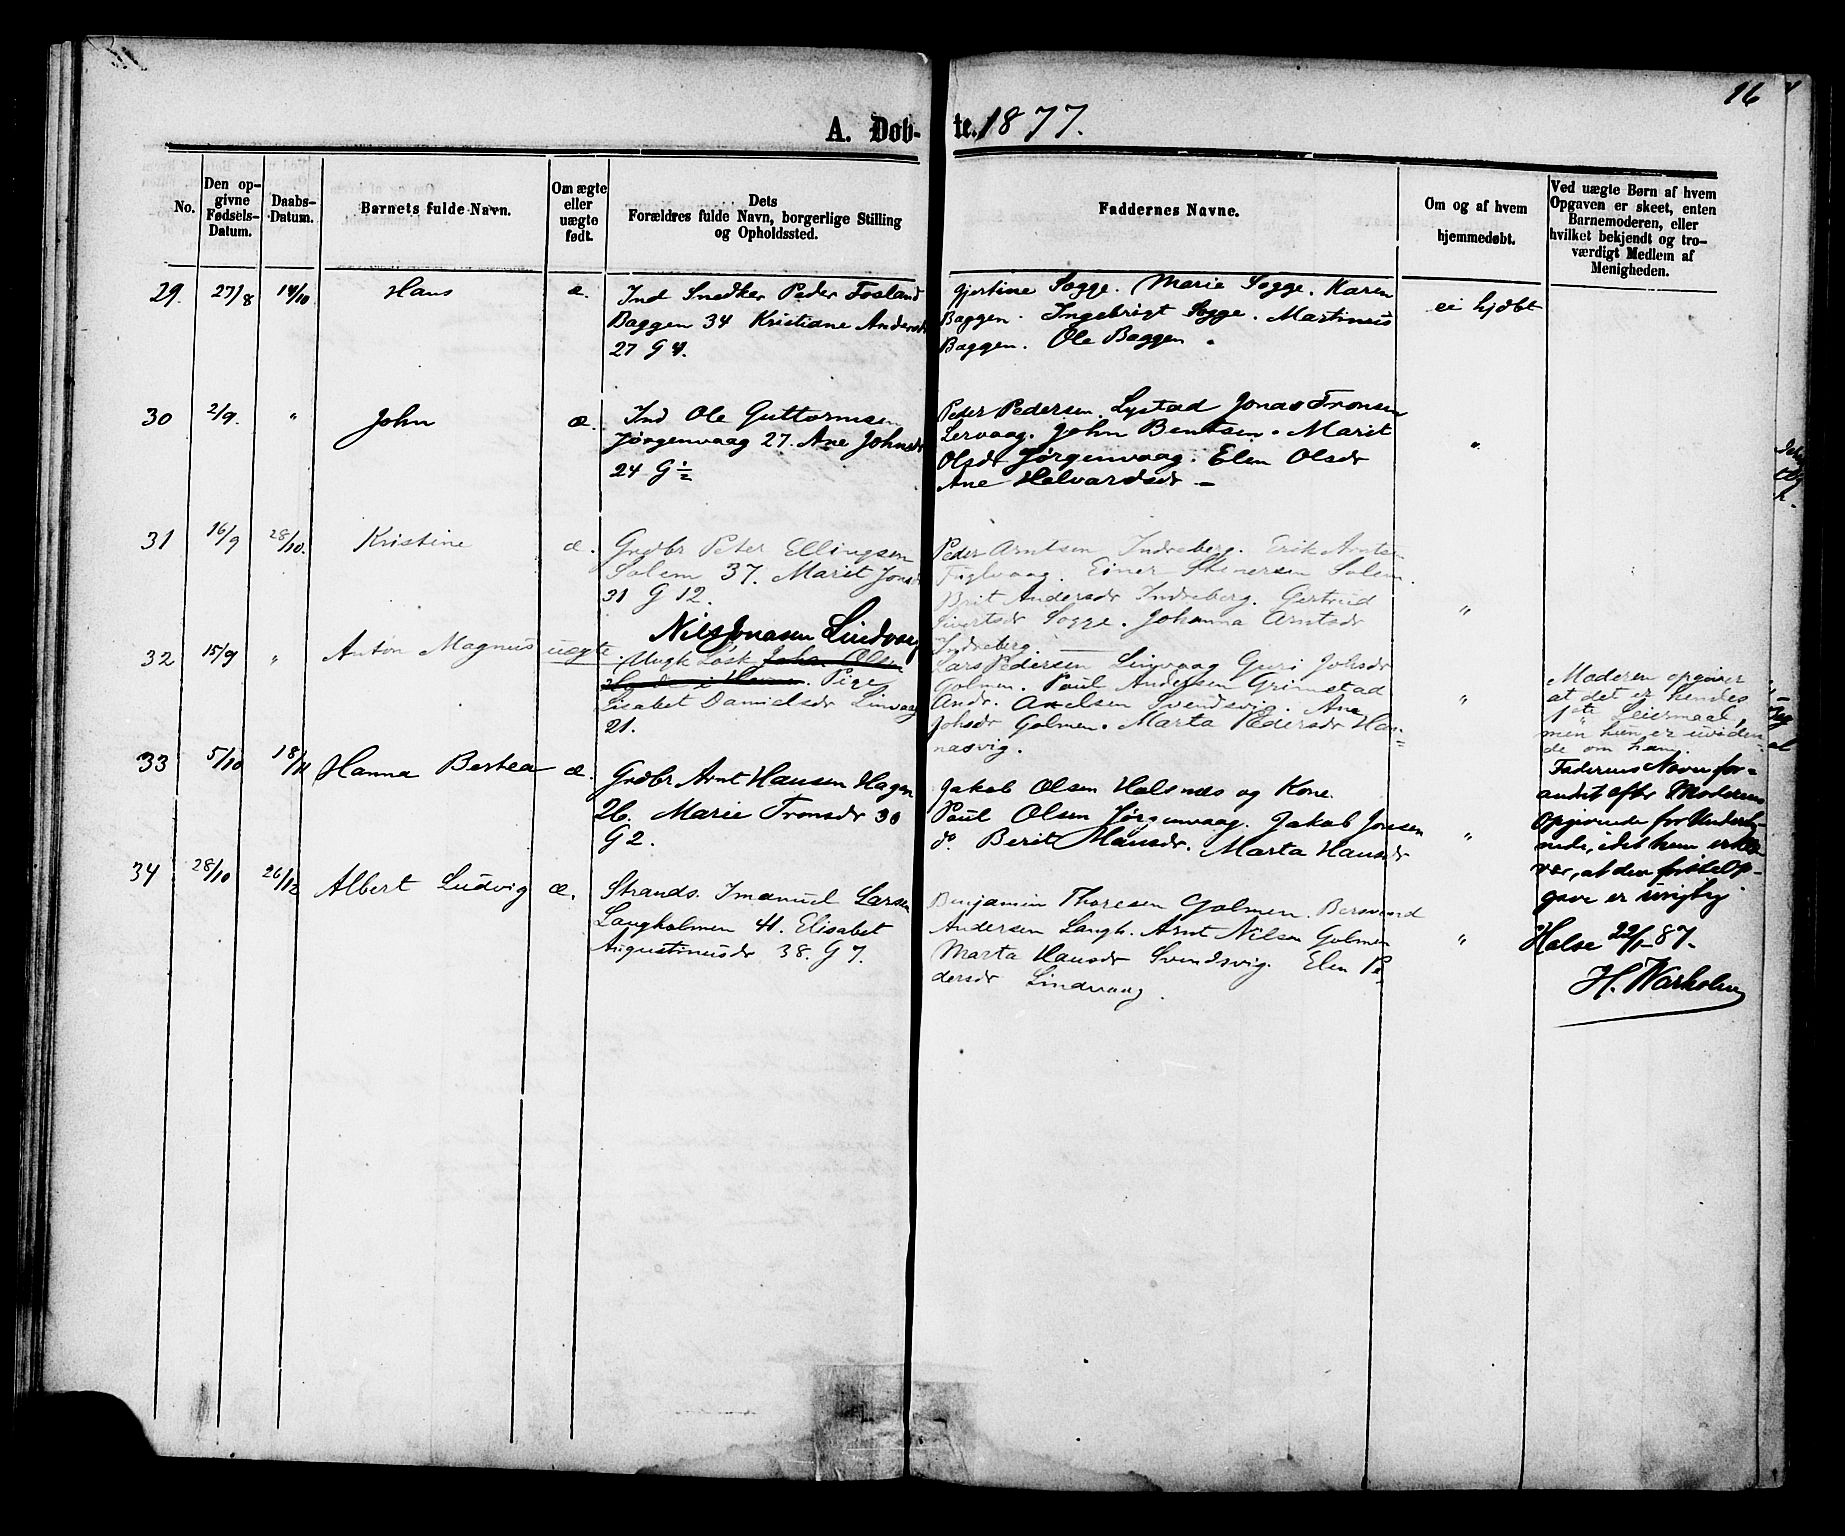 16
A. Døb- te. 1877.
No.
Den op-
givne
Fødsels-
Datum.
Daabs-
Datum.
Barnets fulde Navn.
Om ægte
eller
uægte
født.
Dets
Forældres fulde Navn, borgerlige Stilling
og Opholdssted.
Faddernes Navne.
Om og af hvem
hjemmedøbt.
Ved uægte Børn af hvem
Opgaven er skeet, enten
Barnemoderen, eller
hvilket bekjendt og tro-
værdigt Medlem af
Menigheden.
29. 27/8 14/10 Hans æ.
Ind Snedker Peder Fosland
Baggen 34 Kristiane Andersdr
27 G 4.
Gjertine Sogge. Marie Sogge. Karen
Baggen. Ingebrigt Sogge. Martinus
Baggen. Ole Baggen.
ei hjdbt
30 2/9. " John æ.
Ind Ole Guttormsen
Jørgenvaag 27. Ane Johnsdr
24 G ½
Peder Pedersen Lystad Jonas Tronsen
Lervaag. John Bentsen. Marit
Olsdr Jørgenvaag. Elen Olsdr
Ane Halvardsdr —
"
31 16/9 28/10. Kristine æ.
Grdbr Peter Ellingsen
Solem 37. Marit Jonsdr
31 G 12.
Peder Arntsen Indreberg. Erik Arnts-
Fuglvaag. Einer Steinersen Solem.
Brit Andersdr Indreberg. Gertrud
Sivertsdr Sogge. Johanna Arntsdr
Indreberg.
"
32 15/9 " Anton Magnus uægte.
Nils Jonasen Lindvaag
Ungk Løsk Johs. Olsen
. Pige
Lisabet Danielsdr Linvaag
21.
Lars Pedersen Linvaag Guri Johsdr
Golmen. Poul Andersen Grimstad
Andr. Axelsen Svendsvig. Ane
Johsdr Golmen. Marta Pedersdr Han=
nasvig.
"
Moderen opgiver
at det er hendes
1ste Leiermaal,
men hun er uviden-
de om ham.
Faderens Navn for=
andret efter Moderens
Opgivende for Underteg-
nede, idet hun erklæ-
rer, at den første Op-
gave er urigtig.
Halse 22/1-87.
H. Warholm
33 5/10 18/11 Hanna Bertea æ.
Grdbr Arnt Hansen Hagen
26. Marie Tronsdr 30
G 2.
Jakob Olsen Halsnæs og Kone.
Poul Olsen Jørgenvaag. Jakob Jonsen
do. Berit Hansdr. Marta Hansdr
"
34 28/10 26/12 Albert Ludvig æ.
Strands. Imanuel Larsen
Langholmen 41. Elisabet
Augustinusdr 38. G 7.
Benjamin Thoresen Golmen. Bersvend
Andersen Langh. Arnt Nilsen Golmen
Marta Hansdr Svendsvig. Elen Pe
dersdr Lindvaag.
"